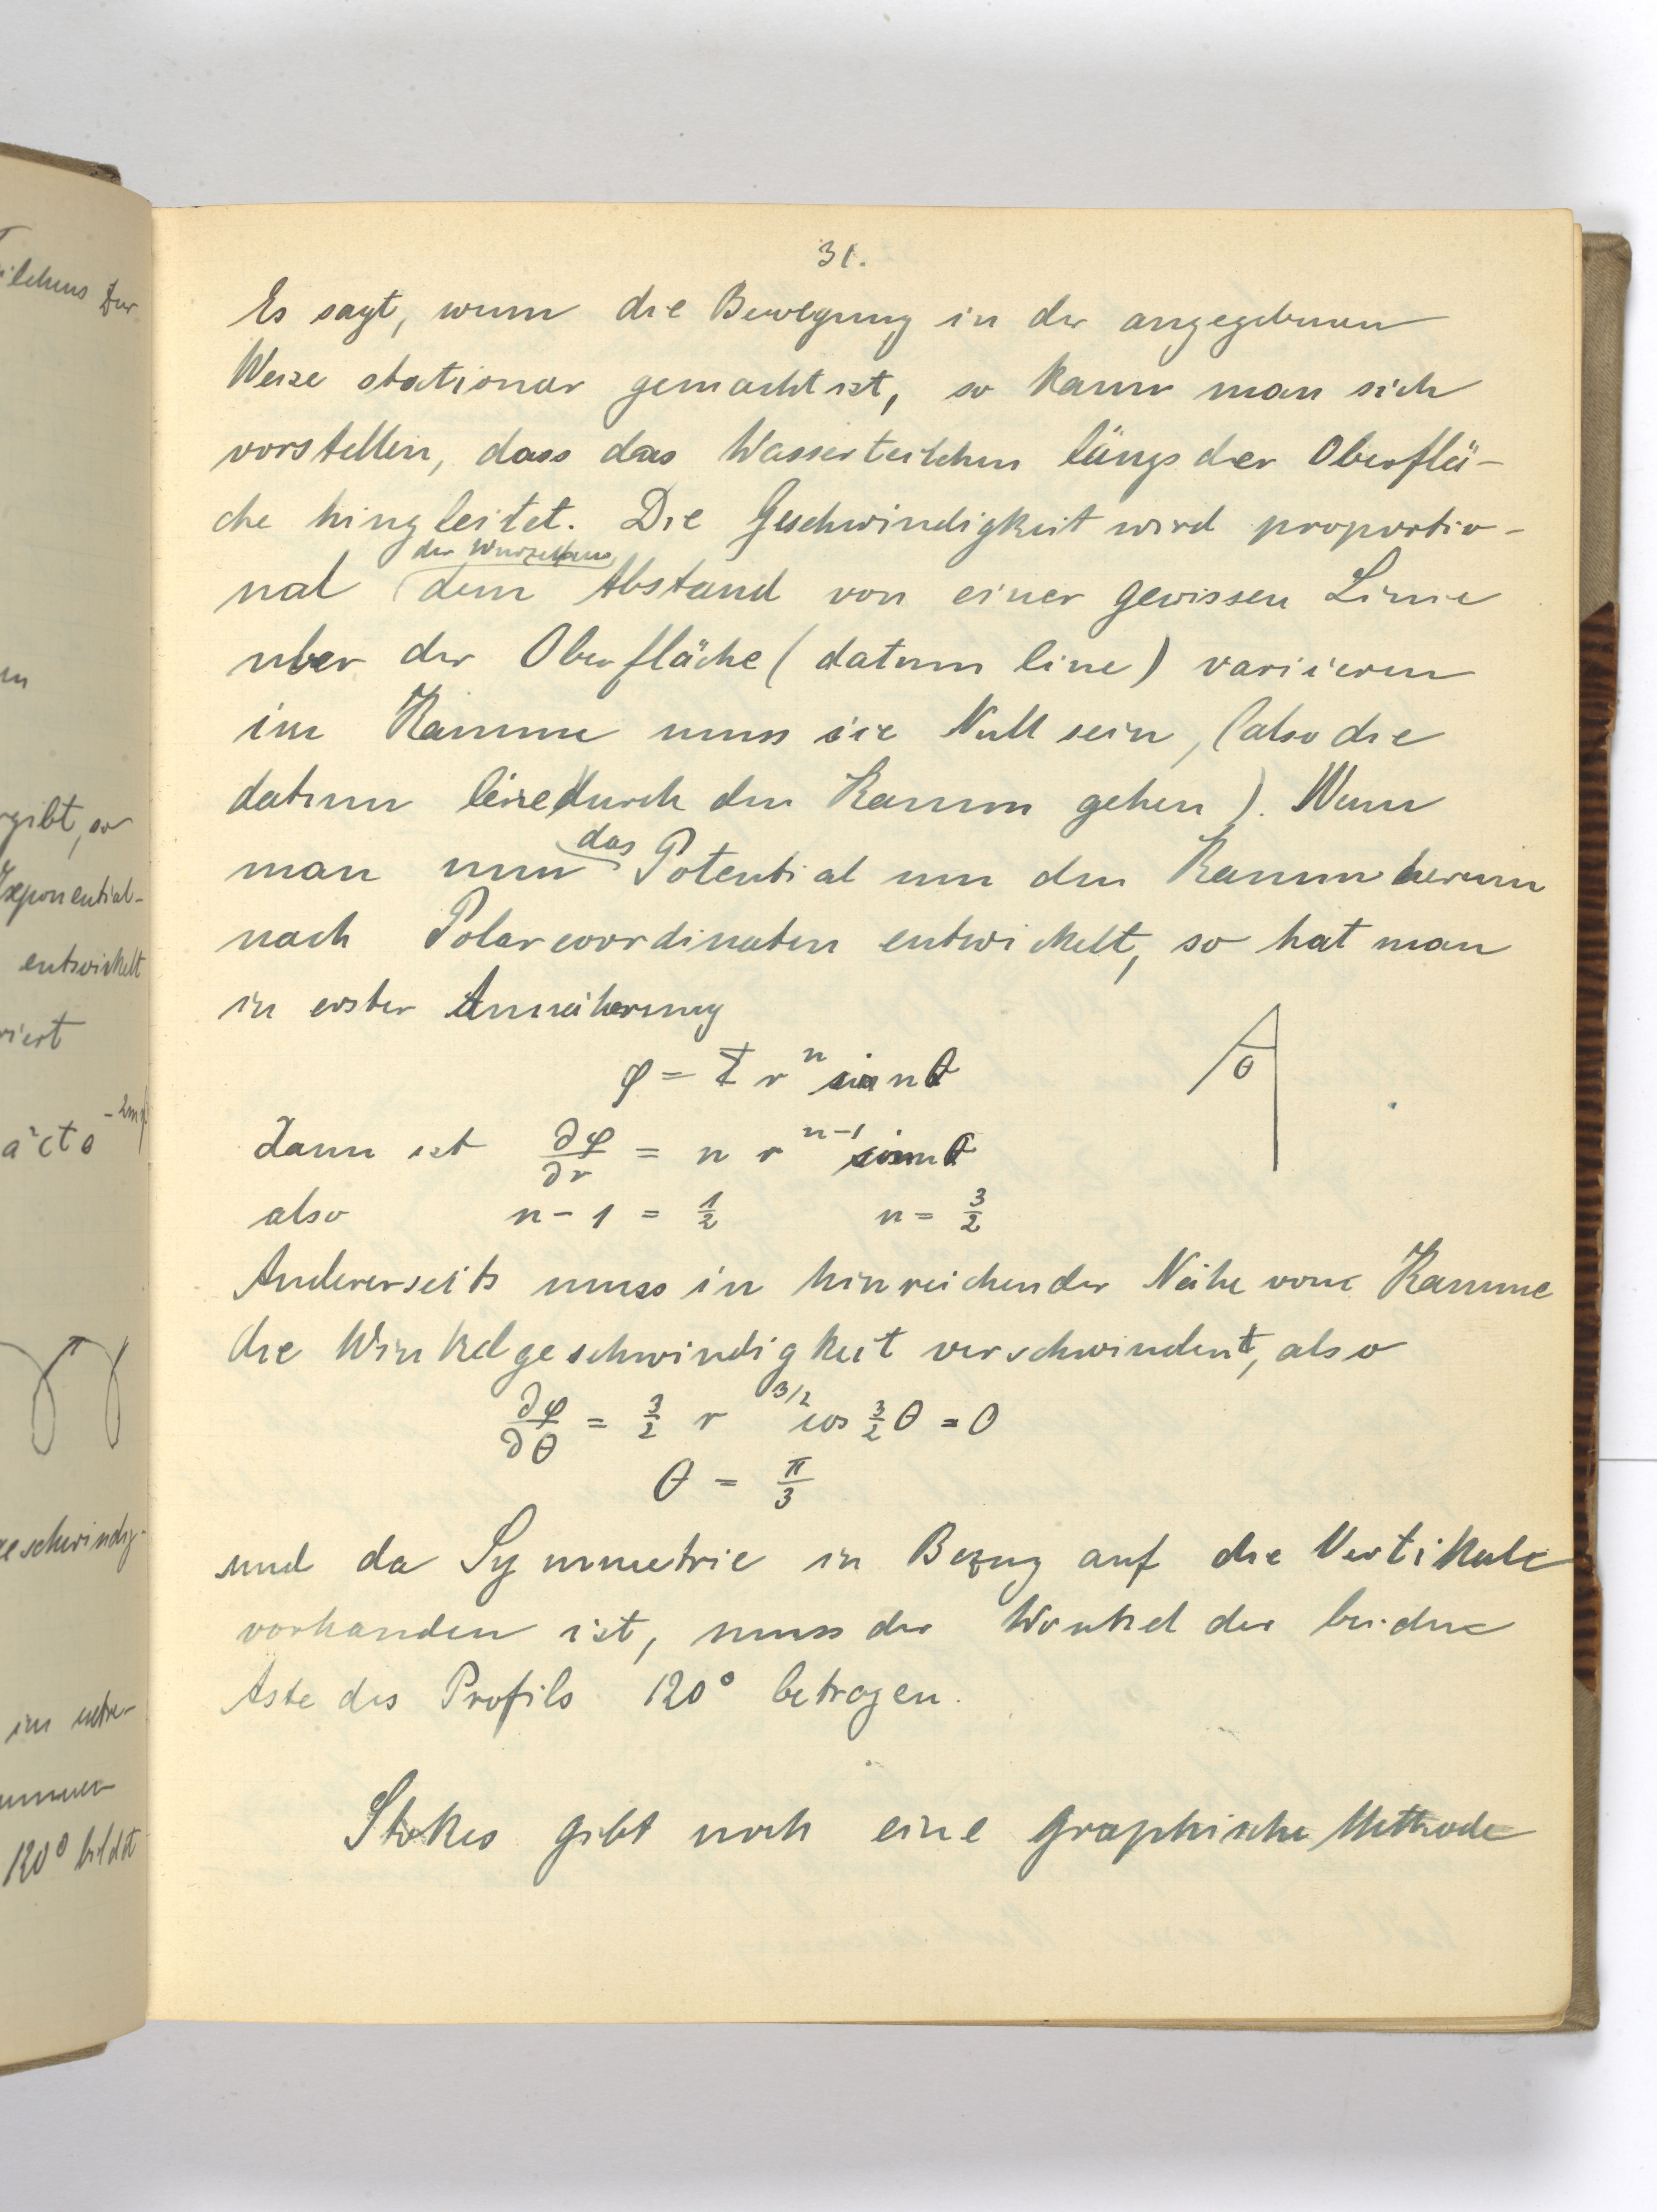 31.
Es sagt, wenn die Bewegung in der angegebenen
Weise stationar gemacht ist, so kann man sich
vorstellen, dass das Wasserteilchen längs der Oberflä-
che hingleitet. Die Geschwindigkeit wird proportio-
der Wurzel
nal dem Abstand von einer gewissen Linie
uber der Oberfläche (datum line) variieren
im Kamme muss sie Null sein, (also die
datum line durch den Kamm gehen). Wenn
das
man nun Potential um den Kamm herum
nach Polarcoordinaten entwickelt, so hat man
in erster Annäherung
φ = r^n sin nθ
θ
dann ist ∂φ/∂r = n r^{n-1} sin nθ
also n - 1 = 1/2 n = 3/2
Andererseits muss in hinreichender Nähe vom Kamme
die Winkelgeschwindigkeit verschwinden, also
∂φ/∂θ = 3/2 r^{3/2} cos 3/2 θ = 0
θ = π/3
und da Symmetrie in Bezug auf die Vertikale
vorhanden ist, muss der Winkel der beiden
Äste des Profils 120° betragen.
Stokes gibt noch eine graphische Methode
ilchens
rgibt, so
Exponential-
entwickelt
riert
geschwindig-
im
120° bildet